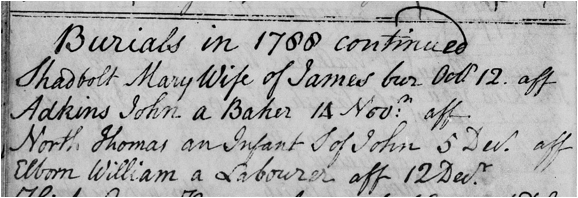 Burials in 1788 continued
Shadbolt Mary Wife of James bur Octr 12. aff
Adkins John a Baker 14 Novr aff
North Thomas an Infant S of John 5 Dec. aff
Elborn William a Labourer aff 12 Decr